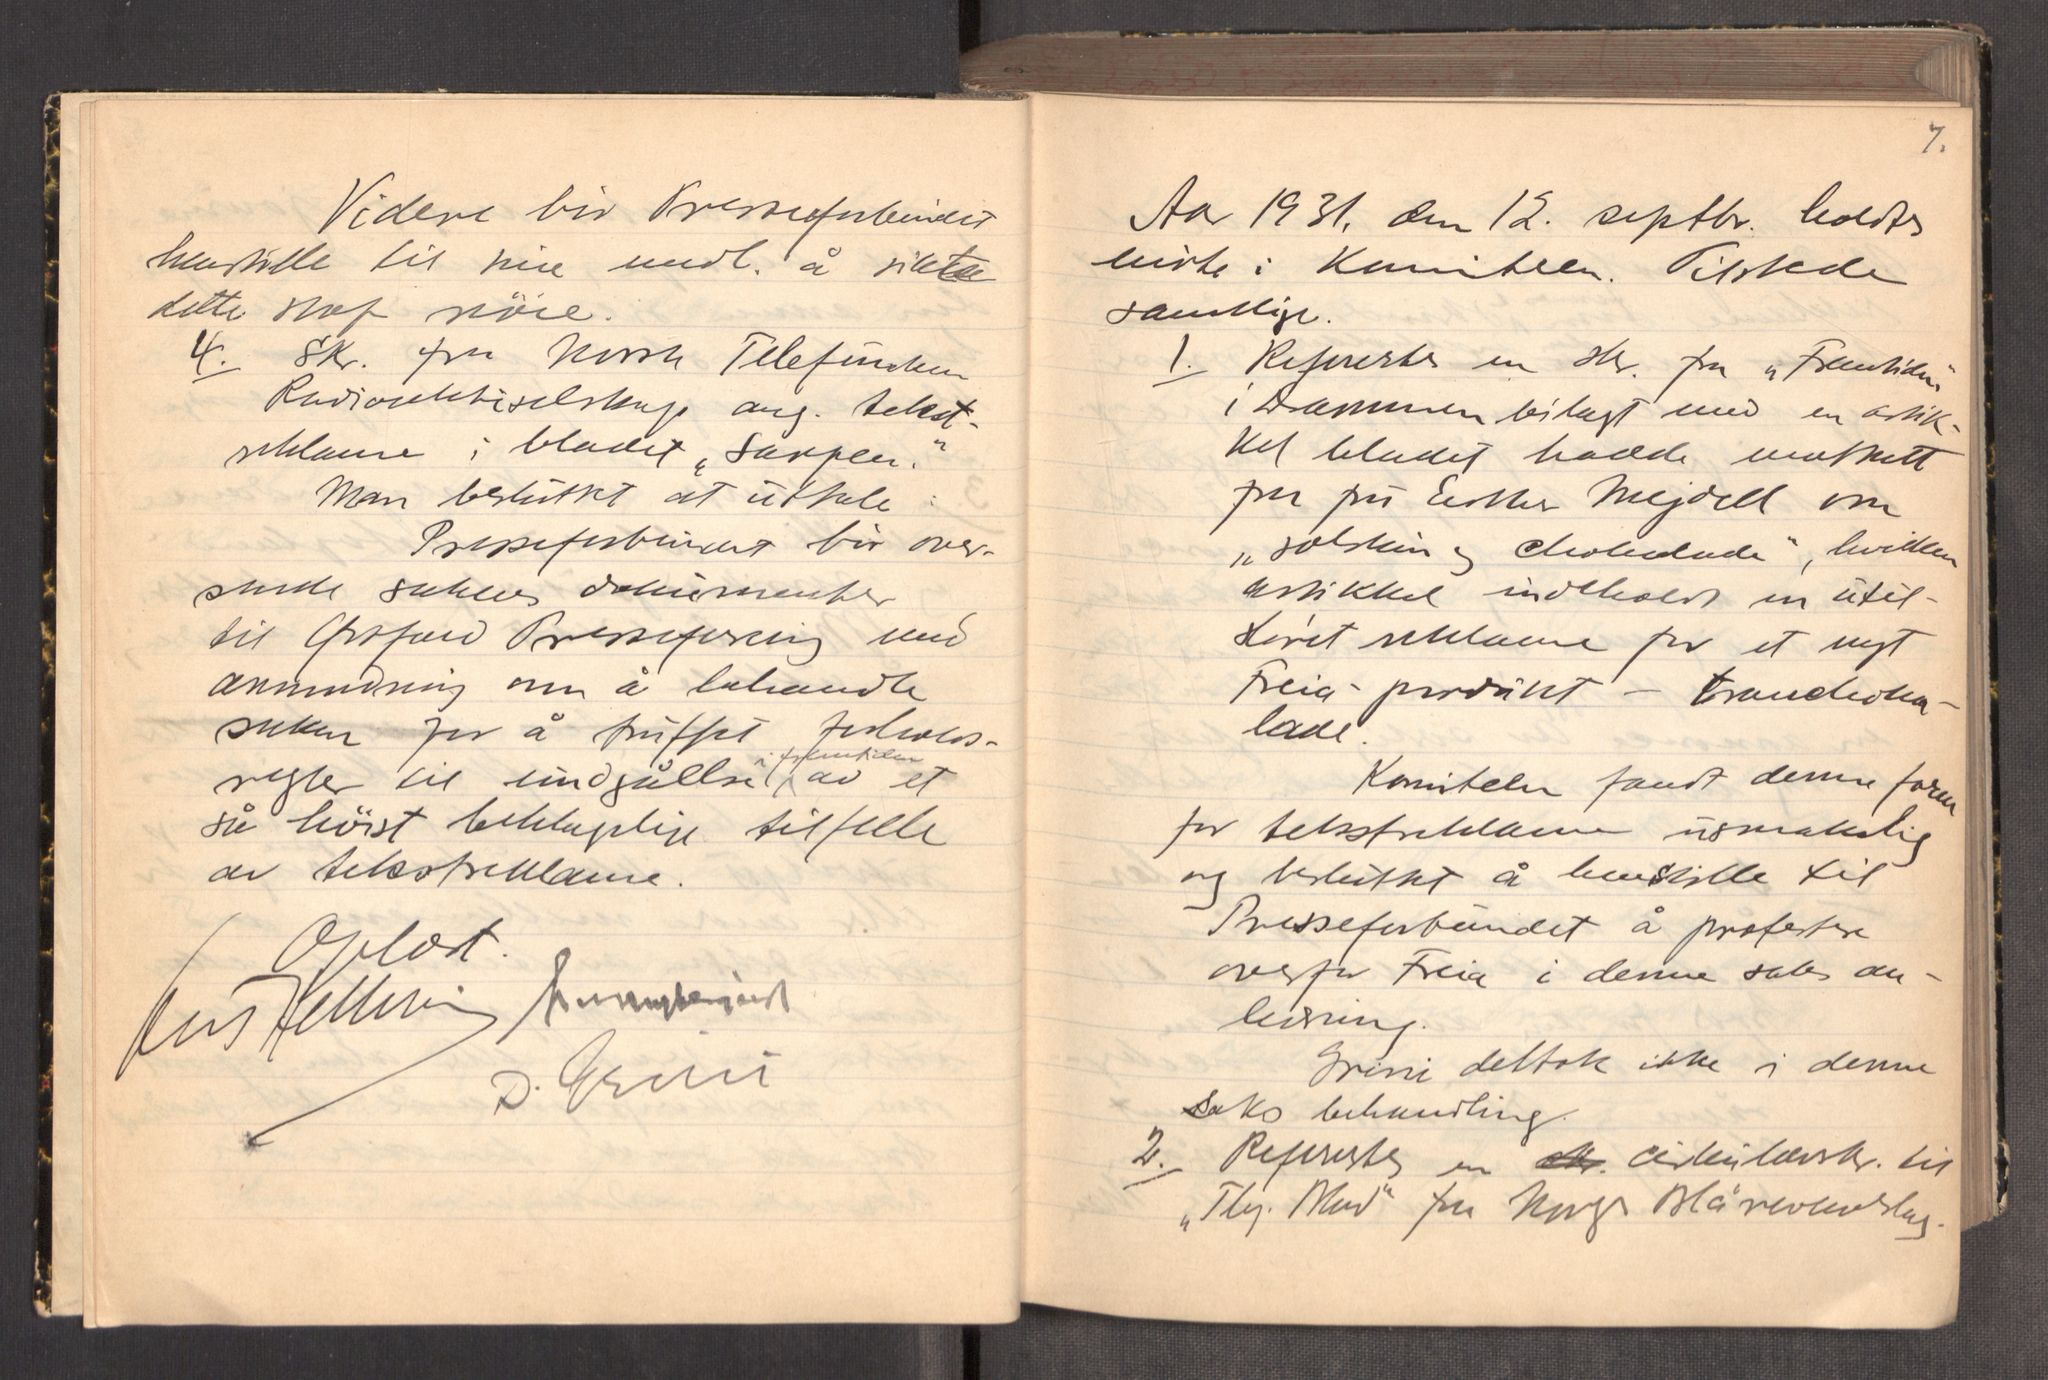 Videre bør Presseforbundet
henstille til sine medl. å sikte
dette stof nöie.
4. Skr. fra Norsk Telefunken
Radioaktieselskap ang. tekst-
reklame i bladet „Sarpen."
Man besluttet at uttale:
Presseforbundet bør over-
sende sakens dokumenter
til Østfold Presseforening med
anmodning om å behandle
saken for å truffet forholds-
regler til undgåelse i fremtiden av et
så höist beklagelige tilfelle
av tekstreklame.
Oplæst.
D. Grini
7.
Aar 1931, den 12. septbr. holdtes
möte i Komiteen. Tilstede
samtlige.
1. Referertes en skr. fra „Fremtiden"
i Drammen bilagt med en artik-
kel bladet hadde mottatt
fra fru Esther Mejdell om
„solskin og chokolade", hvilken
artikkel indeholdt en util-
sløret reklame for et nyt
Freia-produkt – tranchoko-
lade.
Komiteen fandt denne form
for tekstreklame usmakelig
og besluttet å henstille til
Presseforbundet å protestere
overfor Freia i denne saks an-
ledning.
Grini deltok ikke i denne
saks behandling.
2. Referertes en skr. cirkulærskr. til
„Tlgr. Blad" fra Norges Blåkorslag.